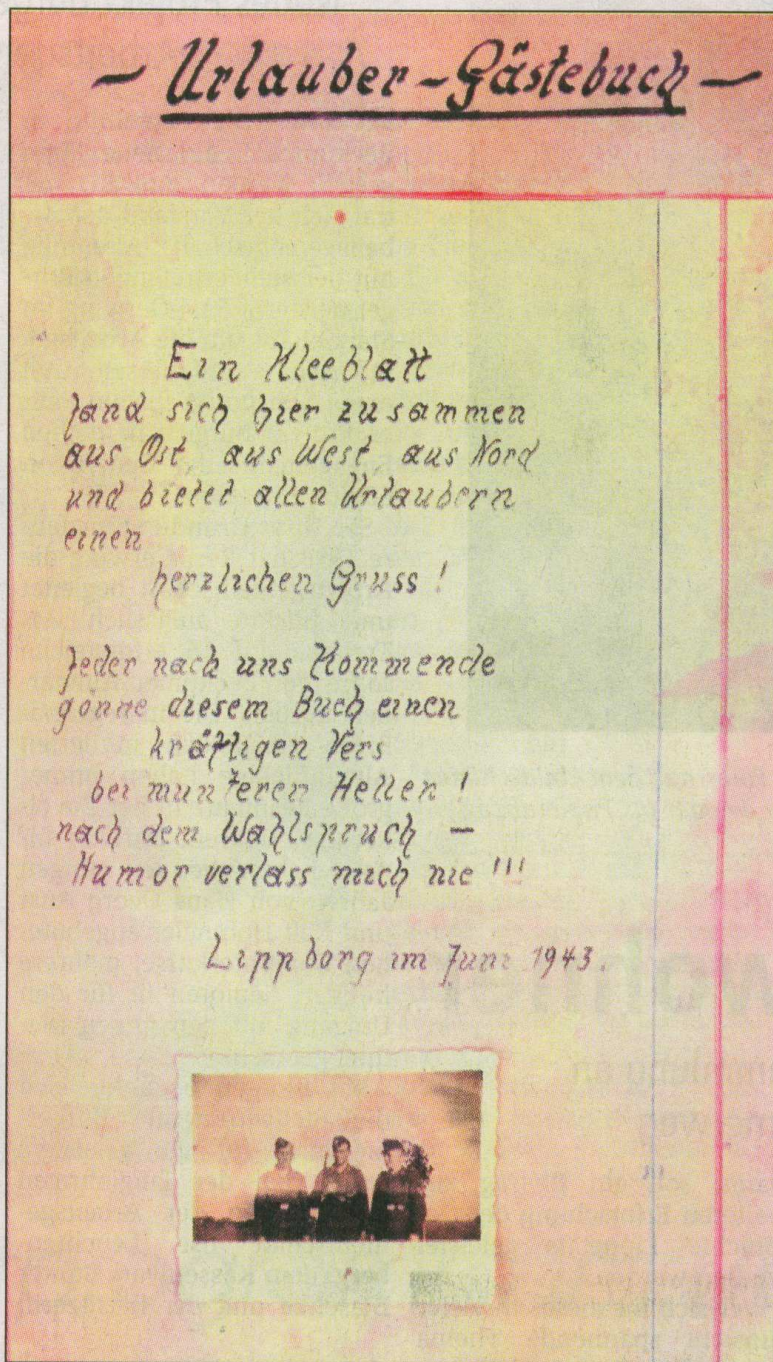 – Urlauber-Gästebuch –
Ein Kleeblatt
fand sich hier zusammen
aus Ost, aus West, aus Nord
und bietet allen Urlaubern
einen
herzlichen Gruss!
Jeder nach uns Kommende
gönne diesem Buch einen
kräftigen Vers
bei munteren Hellen!
nach dem Wahlspruch –
Humor verlass mich nie!!!
Lippborg im Juni 1943.